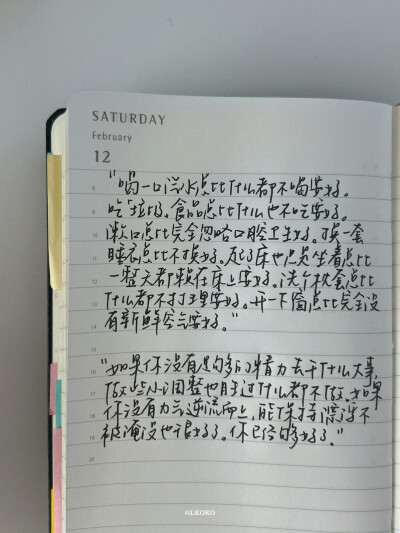 SATURDAY
February
12
8
"喝一口淡水总比什么都不喝要好。
9
吃垃圾食品总比什么也不吃要好。
10
漱口总比完全忽略口腔卫生好。换一套
11
睡衣总比不换好。起了床也总是坐着总比
12
一整天都躺在床上要好。洗个枕套总比
13
什么都不打理要好。开一下窗总比完全没
14
有新鲜空气要好。"
15
16
"如果你没有足够多的精力去干什么大事,
17
做些小调整也胜过什么都不做。如果
18
你没有力气逆流而上,能保持漂浮不
19
被淹没也很好了。你已经够好了。"
20
©LKOKO